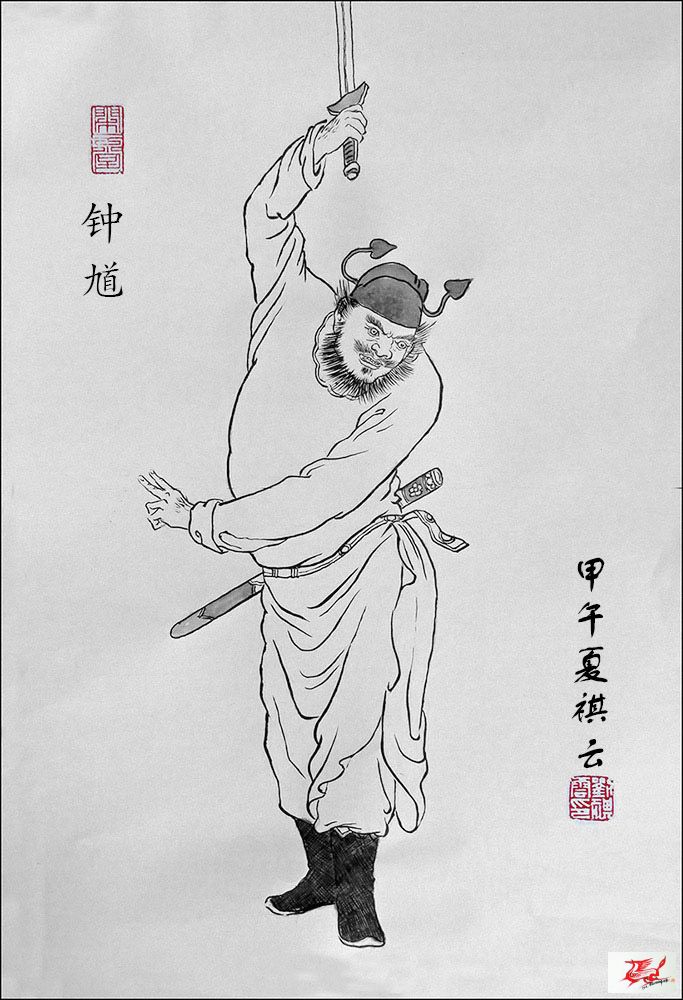 钟馗
甲午夏祺云